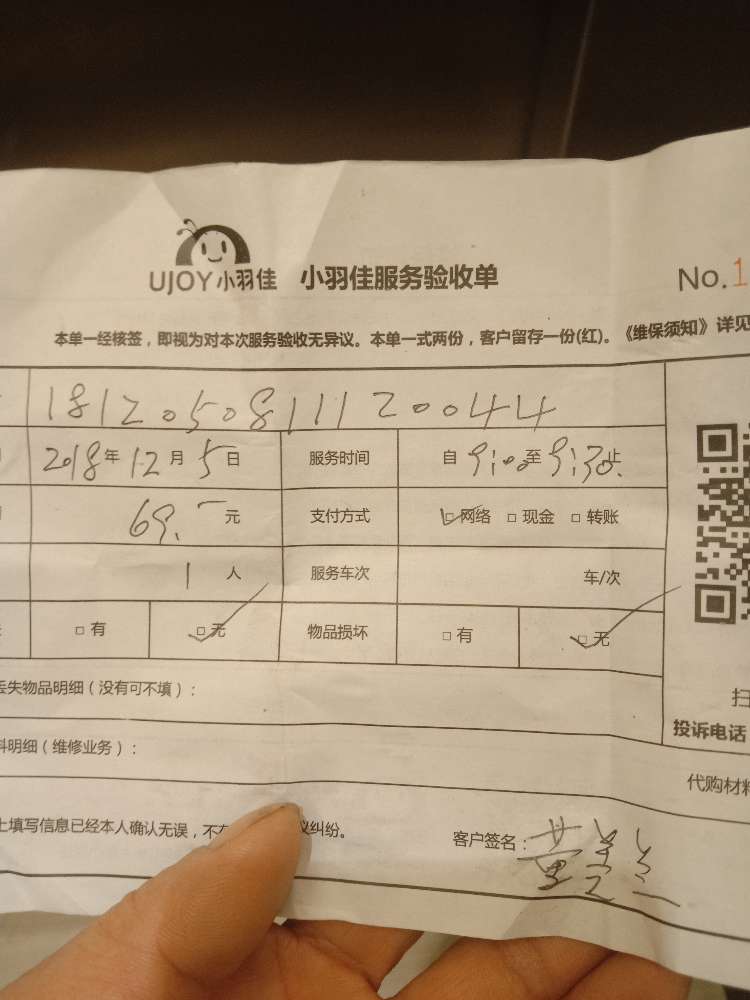 UJOY小羽佳 小羽佳服务验收单 No.1
本单一经核签，即视为对本次服务验收无异议。本单一式两份，客户留存一份(红)。《维保须知》详见
1812050811120044
2018年12月5日 服务时间 自9:00至9:30止
69.-元 支付方式 □网络 □现金 □转账
1人 服务车次 车/次
□有 □无 物品损坏 □有 □无
丢失物品明细（没有可不填）：
扫
投诉电话
料明细（维修业务）：
代购材料
上填写信息已经本人确认无误，不 议纠纷。 客户签名：黄